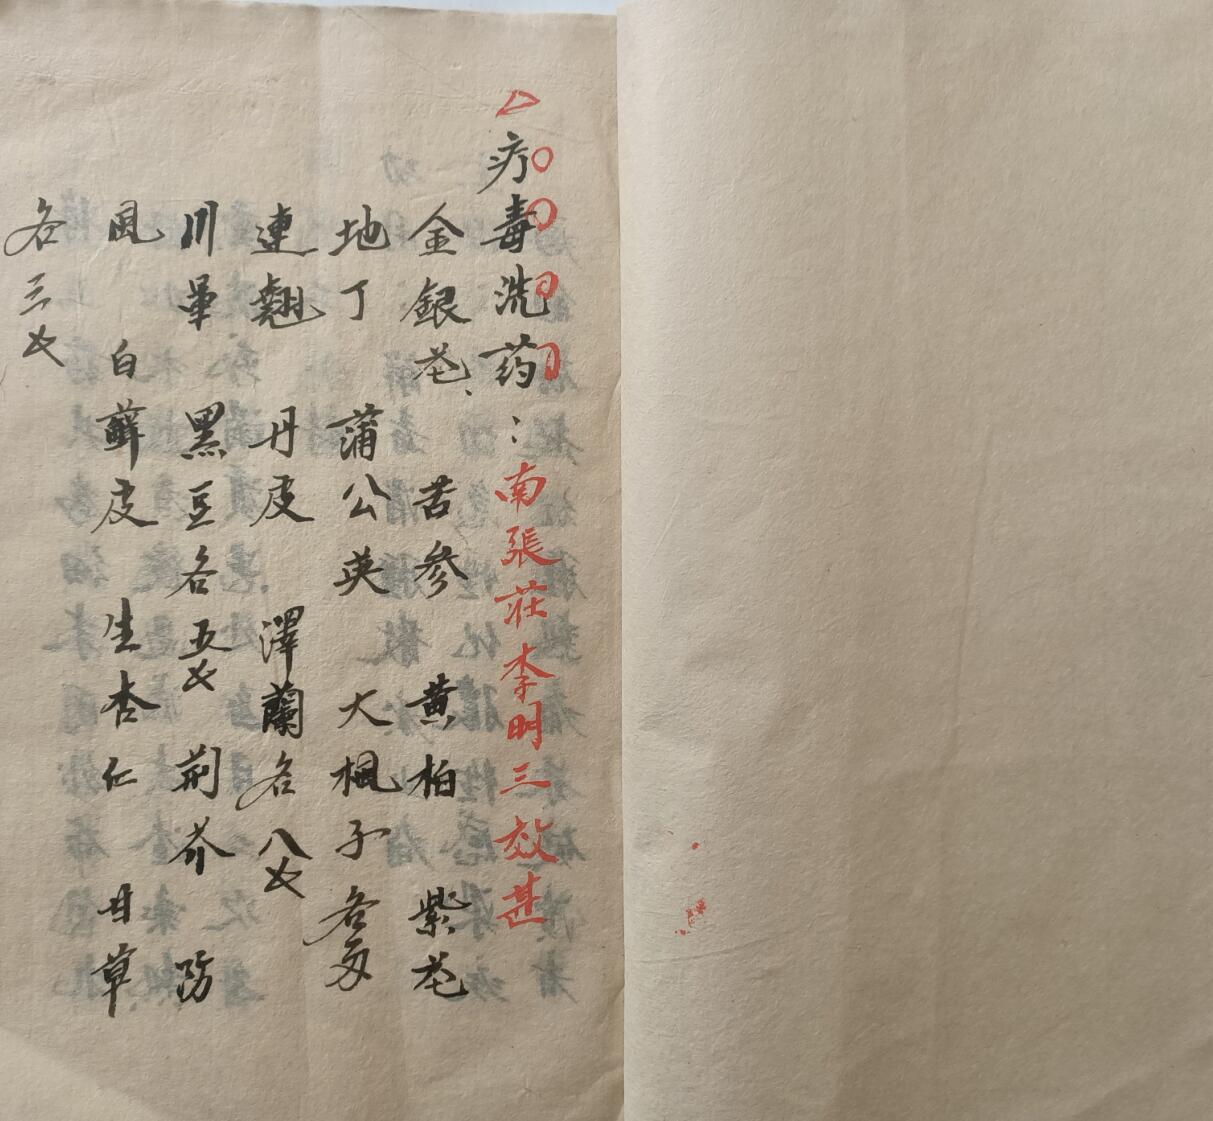 疗毒洗药：南張莊李明三效甚
金銀花、苦參 黃柏 紫花
地丁 蒲公英 大楓子各
連翹 丹皮 澤蘭各八
川 黑豆各五 荊芥 防
風 白蘚皮 生杏仁 甘草
各三